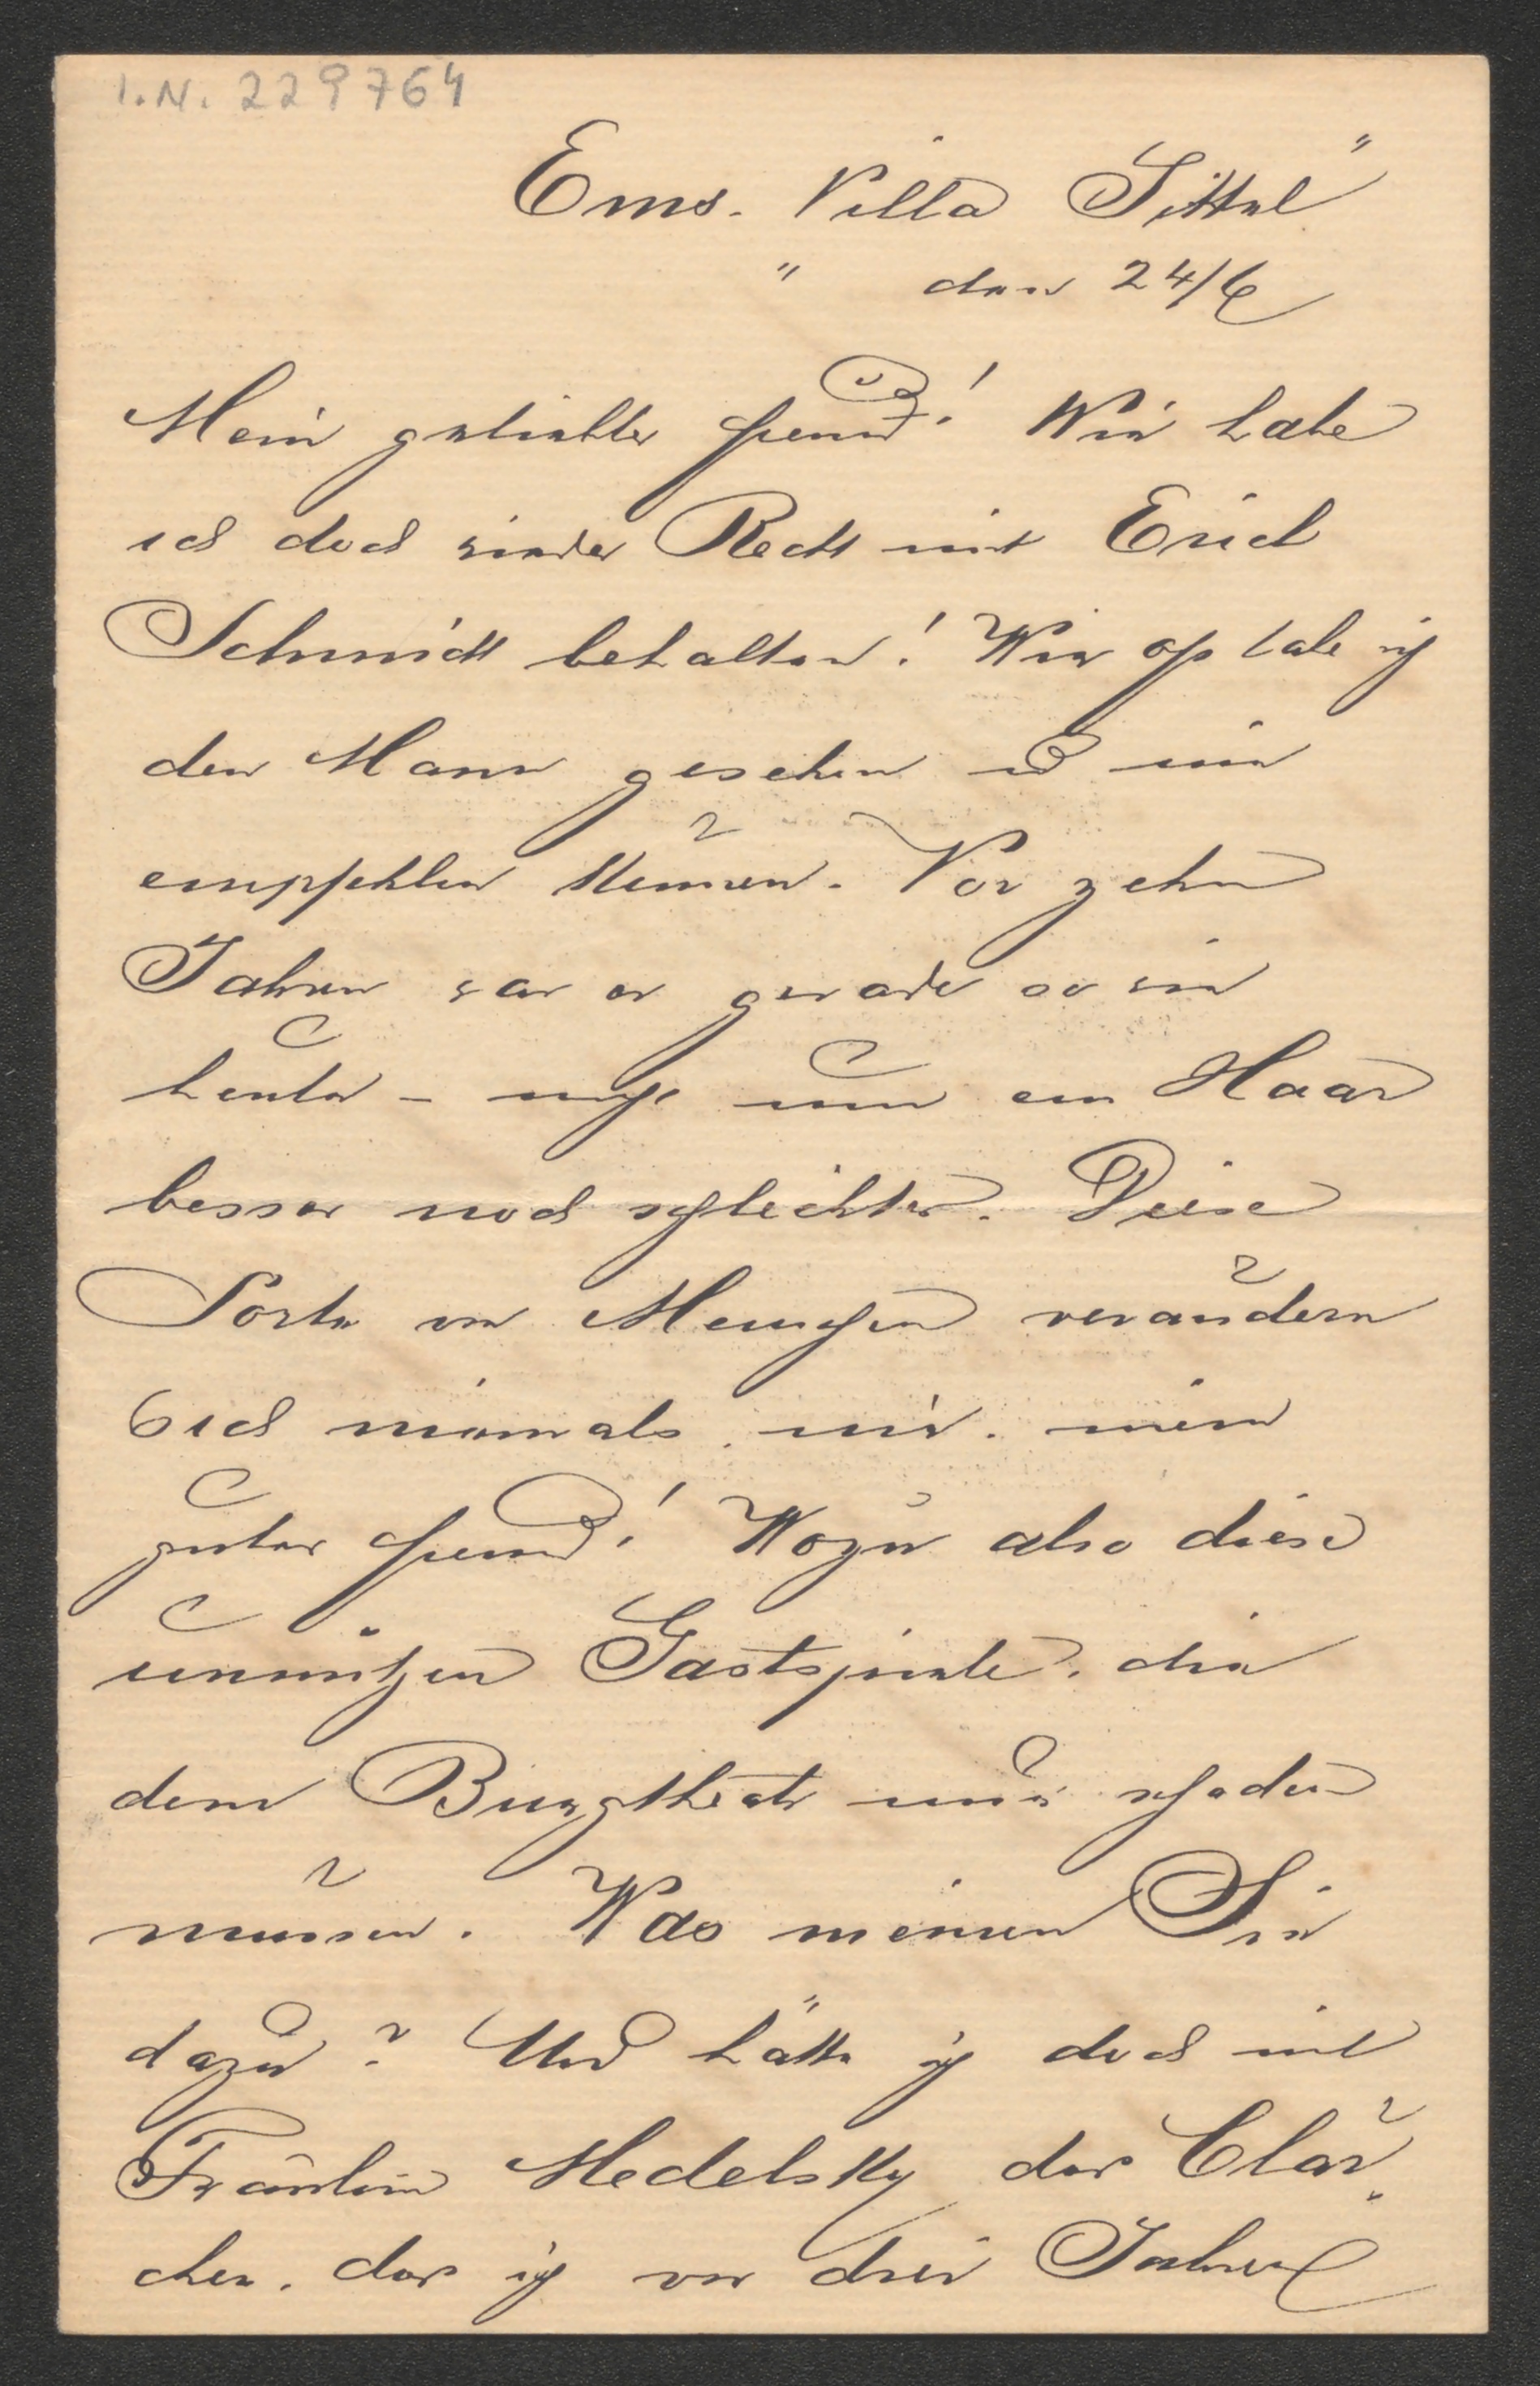 I.N. 229764
Ems. Villa Sittel"
" den 24/6
Mein geliebter Freund! Wie habe
ich doch wieder Recht mit Erich
Schmidt behalten! Wie oft habe ich
den Mann gesehen und nie
empfehlen können. Vor zehn
Jahren war er gerade so wie
heute – nicht um ein Haar
besser noch schlechter. Diese
Sorte von Menschen verändern
sich niemals, nie. mein
guter Freund! Wozu also diese
unnützen Gastspiele, die
dem Burgtheater nur schaden
müssen. Was meinen Sie
dazu? Und hätte ich doch mit
Fräulein Medelsky der Clär-
chen. der ich vor drei Jahren